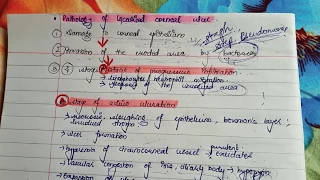 Pathology of bacterial corneal ulcer
① Damage to corneal epithelium
Staph
Strep Pseudomonas
② Invasion of the wounded area by bacteria
③ 4 stages
Stage of progressive infiltration
→ lymphocytes, neutrophil infiltration
→ necrosis of the involved area
Stage of active ulceration
→ necrosis, sloughing of epithelium, bowman's layer,
involved stroma
→ ulcer formation
→ hyperemia of circumcorneal vessel purulent
exudates
→ Vascular congestion of iris, ciliary body →
of ulcer